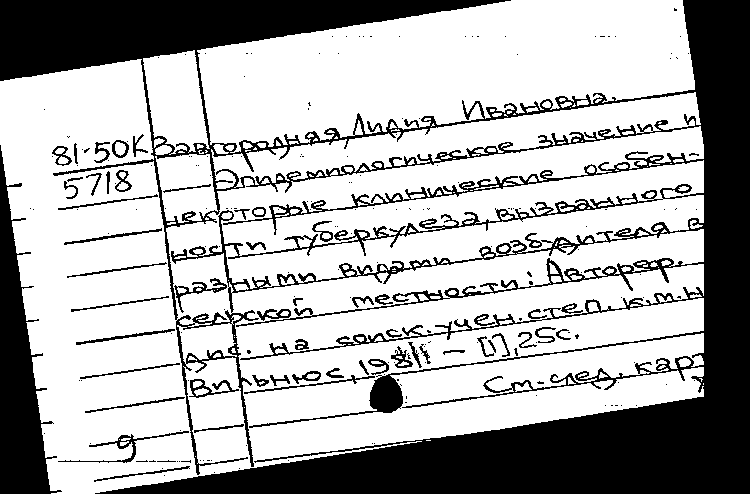 81-50К Завгородняя, Лидия Ивановна.
5718 Эпидемиологическое значение и
некоторые клинические особен-
ности туберкулеза, вызванного
разными видами возбудителя в
сельской местности: Автореф.
дис. на соиск. учен. степ. к.м.н
Вильнюс, – [1], 25с.
См. след. карт
9